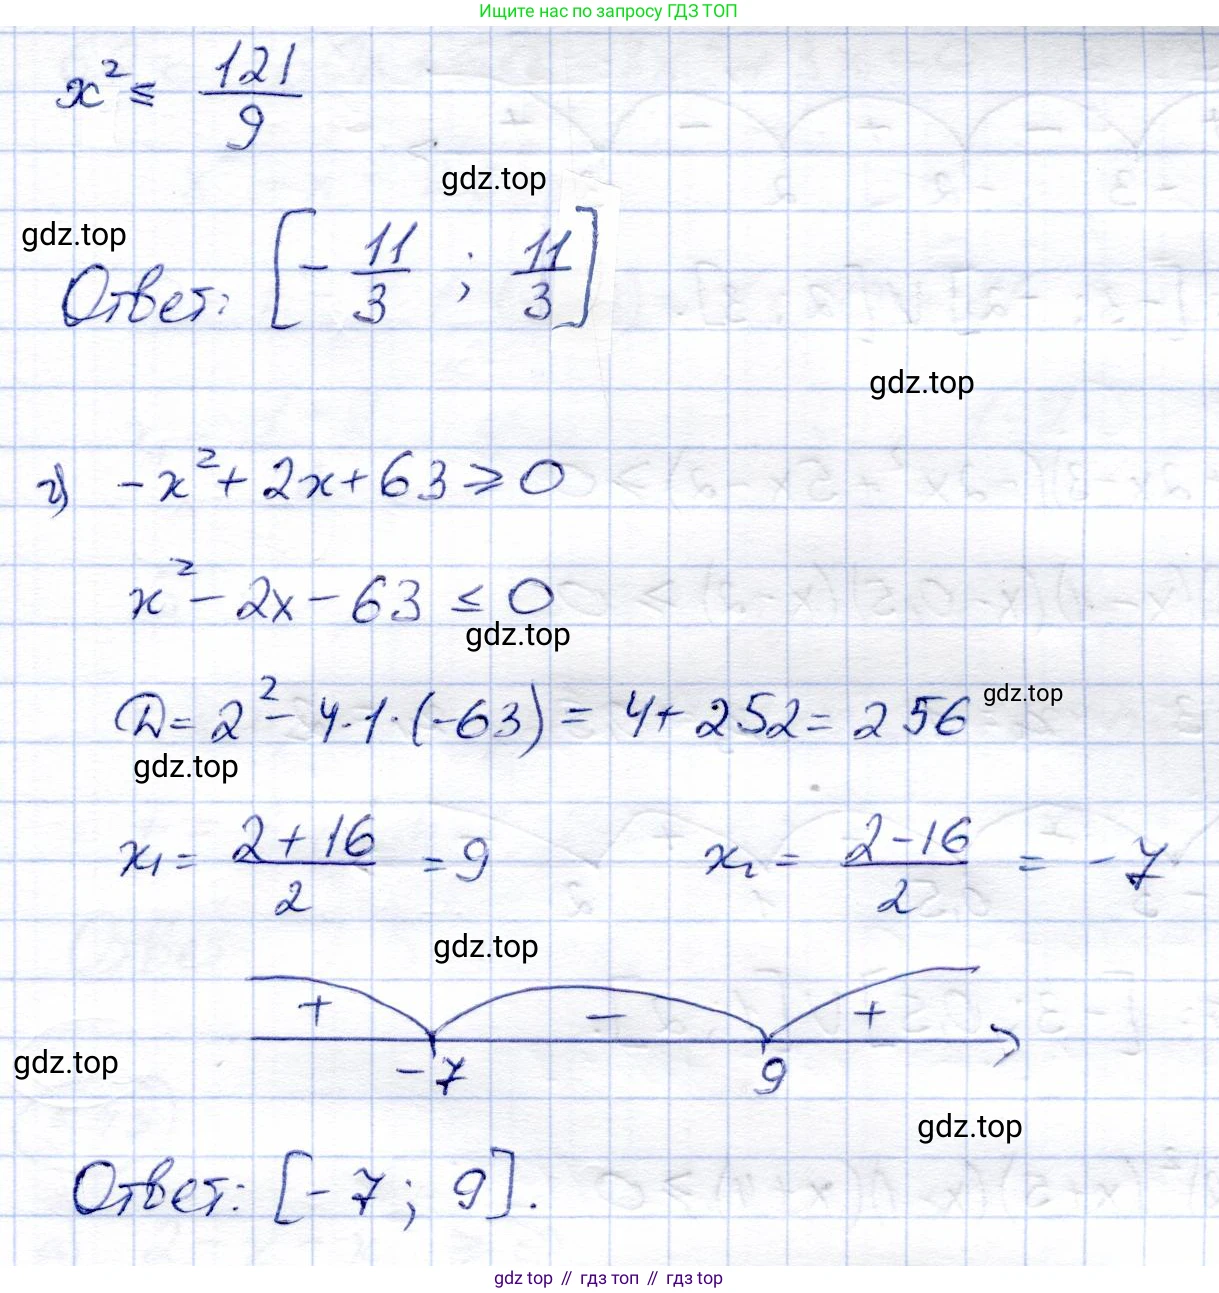 Ищите нас по запросу ГДЗ ТОП
x² ≤ 121/9
gdz.top
gdz.top
Ответ: [-11/3 ; 11/3]
gdz.top
г) -x² + 2x + 63 ⩾ 0
x² - 2x - 63 ≤ 0
gdz.top
D = 2² - 4·1·(-63) = 4 + 252 = 256
gdz.top
gdz.top
x₁ = (2 + 16)/2 = 9 x₂ = (2 - 16)/2 = -7
gdz.top
+ - +
-7 9
gdz.top
gdz.top
Ответ: [-7; 9].
gdz top // гдз топ // гдз top